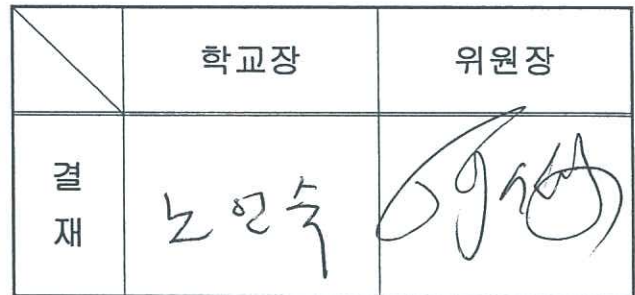 학교장 위원장
결
재
노인숙